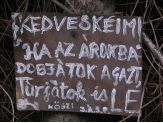 KEDVESKÉIM!
"HA AZ ÁROKBA
DOBJÁTOK A GAZT
Túrjátok is LE
KÖSZI